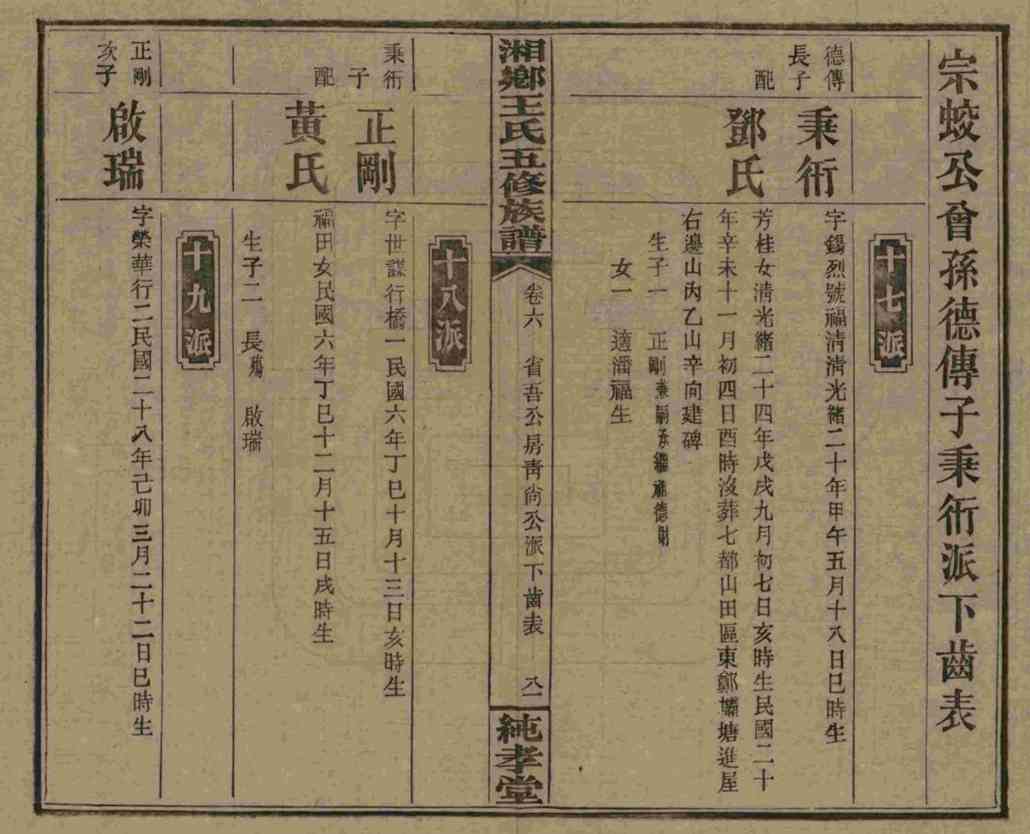 宗蛟公曾孫德傳子秉衎派下齒表
十七派
德傳
長子
秉衎
字錫烈號福清清光緒二十年甲午五月十八日巳時生
配
鄧氏
芳桂女清光緒二十四年戊戌九月初七日亥時生民國二十
年辛未十一月初四日酉時沒葬七都山田區東鄉壩塘進屋
右邊山內乙山辛向建碑
生子一 正剛兼嗣承繼德財
女一 適潘福生
湘鄉王氏五修族譜
卷六 省吾公房靑尙公派下齒表 八一
純孝堂
十八派
秉衎
子
正剛
字世謀行橋一民國六年丁巳十月十三日亥時生
配
黃氏
福田女民國六年丁巳十二月十五日戌時生
生子二 長殤 啟瑞
十九派
正剛
次子
啟瑞
字榮華行二民國二十八年己卯三月二十二日巳時生